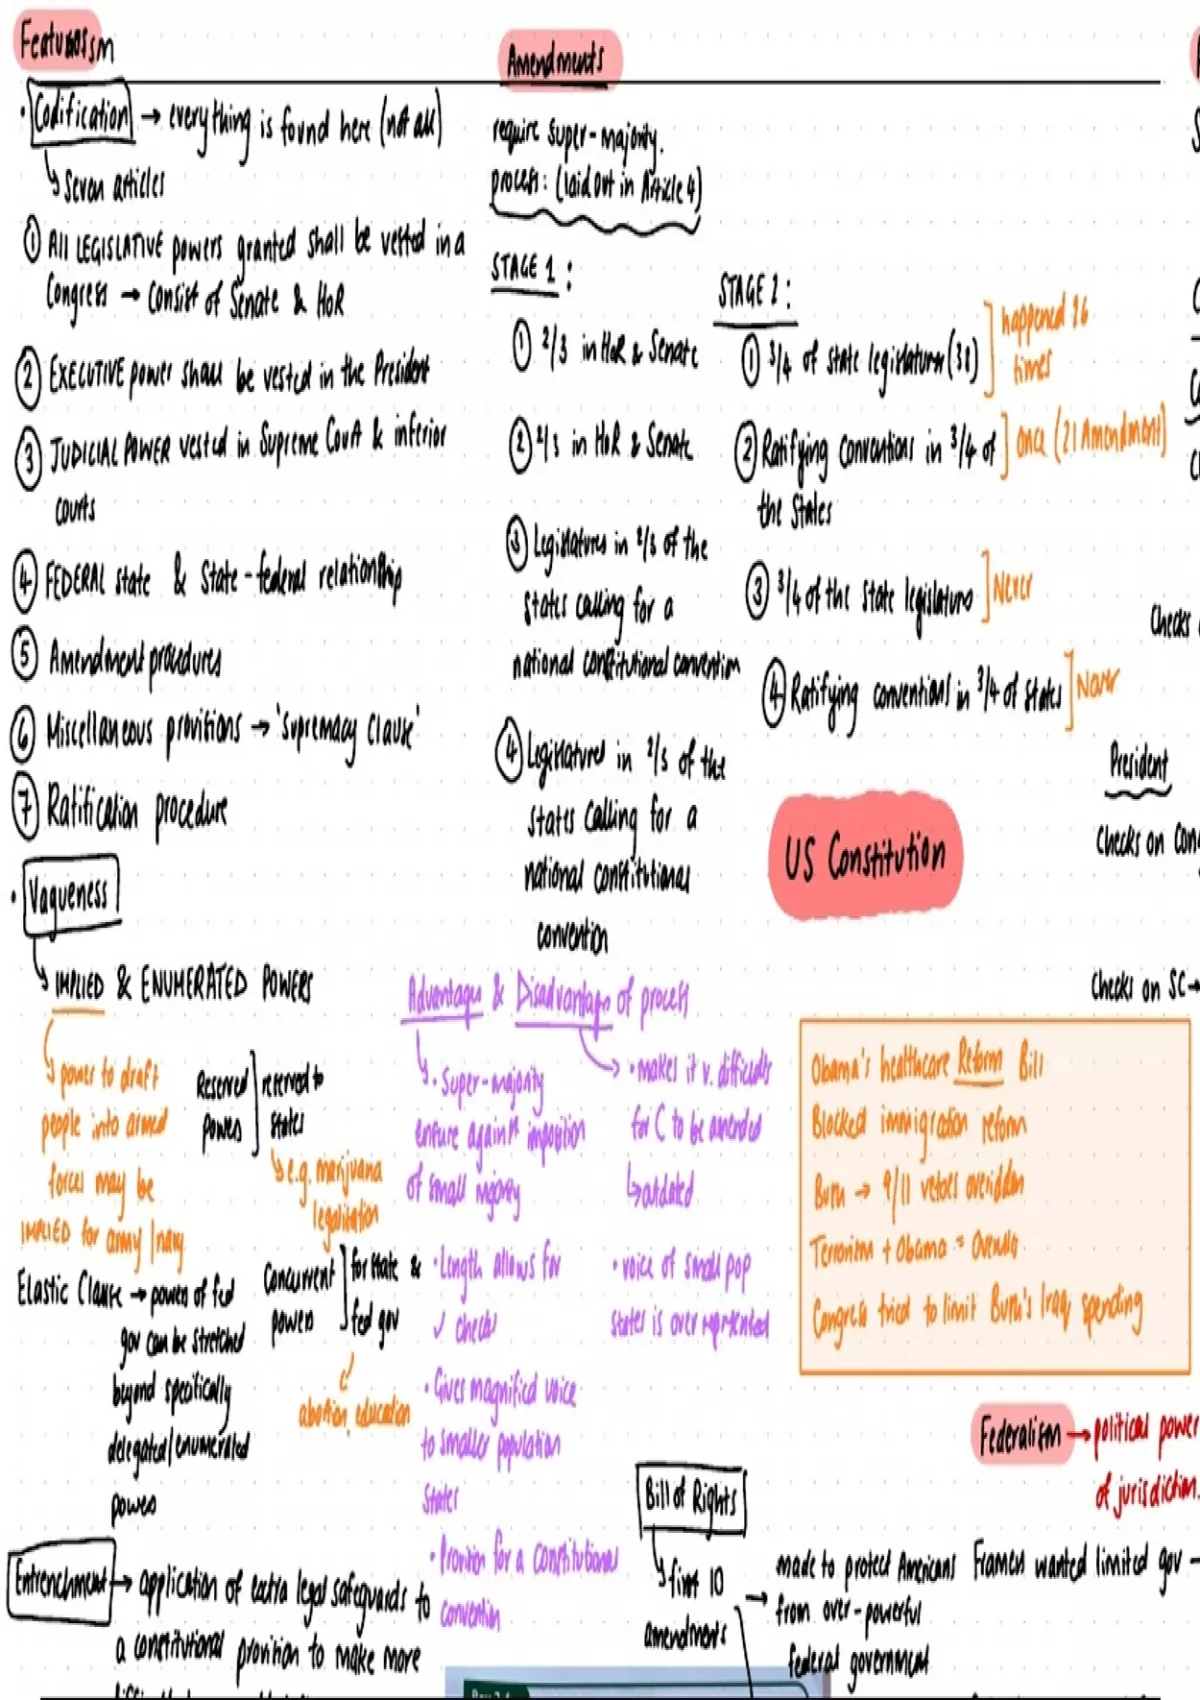 Features
· Codification → everything is found here (not all)
↳ Seven articles
① All LEGISLATIVE powers granted shall be vested in a
Congress → Consist of Senate & HoR
② EXECUTIVE power shall be vested in the President
③ JUDICIAL POWER vested in Supreme Court & inferior
courts
④ FEDERAL state & State-federal relationship
⑤ Amendment procedures
⑥ Miscellaneous provisions → 'Supremacy Clause'
⑦ Ratification procedure
· Vagueness
↳ IMPLIED & ENUMERATED POWERS
↳ power to draft
people into armed
forces may be
IMPLIED for army/navy
Reserved
powers
reserved to
states
↳ e.g. marijuana
legalisation
Elastic Clause → powers of fed
gov can be stretched
beyond specifically
delegated/enumerated
powers
Concurrent
powers
for state &
fed gov
abortion, education
Entrenchment → application of extra legal safeguards to
a constitutional provision to make more
Amendments
require super-majority.
process: (laid out in Article 4)
STAGE 1:
① 2/3 in HoR & Senate
② 2/3 in HoR & Senate
③ Legislatures in 2/3 of the
states calling for a
national constitutional convention
④ Legislatures in 2/3 of the
states calling for a
national constitutional
convention
STAGE 2:
① 3/4 of state legislatures (38)
happened 26
times
② Ratifying conventions in 3/4 of
the states
once (21 Amendment)
③ 3/4 of the state legislatures
Never
④ Ratifying conventions in 3/4 of states
Never
US Constitution
Advantages & Disadvantages of process
· Super-majority
ensure against imposition
of small majority
· Length allows for
✓ checks
· Gives magnified voice
to smaller population
states
· Provision for a constitutional
convention
· makes it v. difficult
for C to be amended
↳ outdated
· voice of small pop
states is over represented
Checks
President
Checks on Con
Checks on SC →
Obama's healthcare Reform Bill
Blocked immigration reform
Bush → 9/11 vetoes overidden
Terrorism + Obama = Overule
Congress tried to limit Bush's Iraq spending
Federalism → political power
of jurisdiction.
Bill of Rights
↳ first 10
amendments
→ made to protect Americans
from over-powerful
federal government
Framers wanted limited gov -